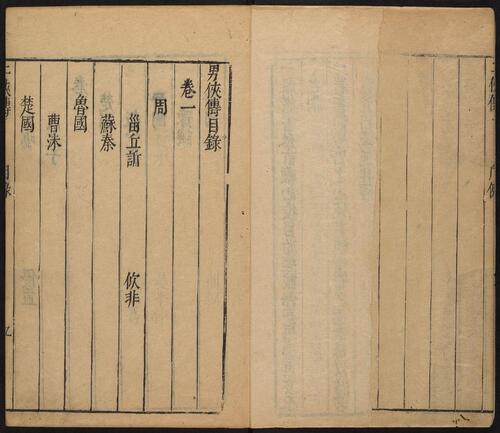 男俠傳目錄
卷一
周
甾丘訢 佽非
蘇秦
魯國
曹沬
楚國
俠傳 目錄 九